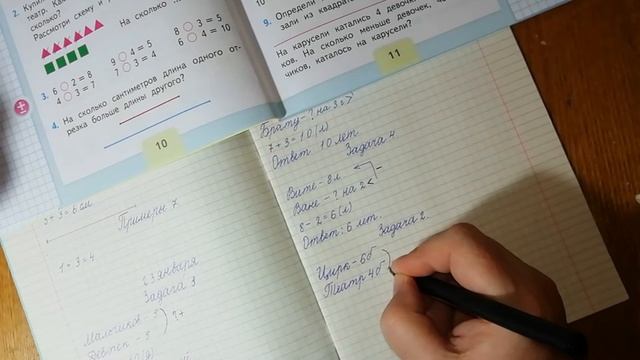 2. Купил
театр. Ка
сколько?
На сколько
Рассмотри схему и
3. 6 2 = 8
4 3 = 7
9 4 = 5
7 3 = 4
8 3 = 5
6 4 = 10
4. На сколько сантиметров длина одного от-
резка больше длины другого?
10
9. Определи
зали из квадрат
На карусели катались 4 девочк
ков. На сколько меньше девочек,
чиков, каталось на карусели?
11
3 + 3 = 6 см
Примеры 7
1 = 3 = 4
23 января
Задача 3
Мальчиков - 3
? +
Девочк - 3
Брату - ? на 3 г. >
7 + 3 = 10 (л)
Ответ 10 лет.
Задача 4
Вите - 8 л
Ване - ? на 2 <
8 - 2 = 6 (л)
Ответ: 6 лет.
Задача 2
Цирк - 6 б
Театр 4 б